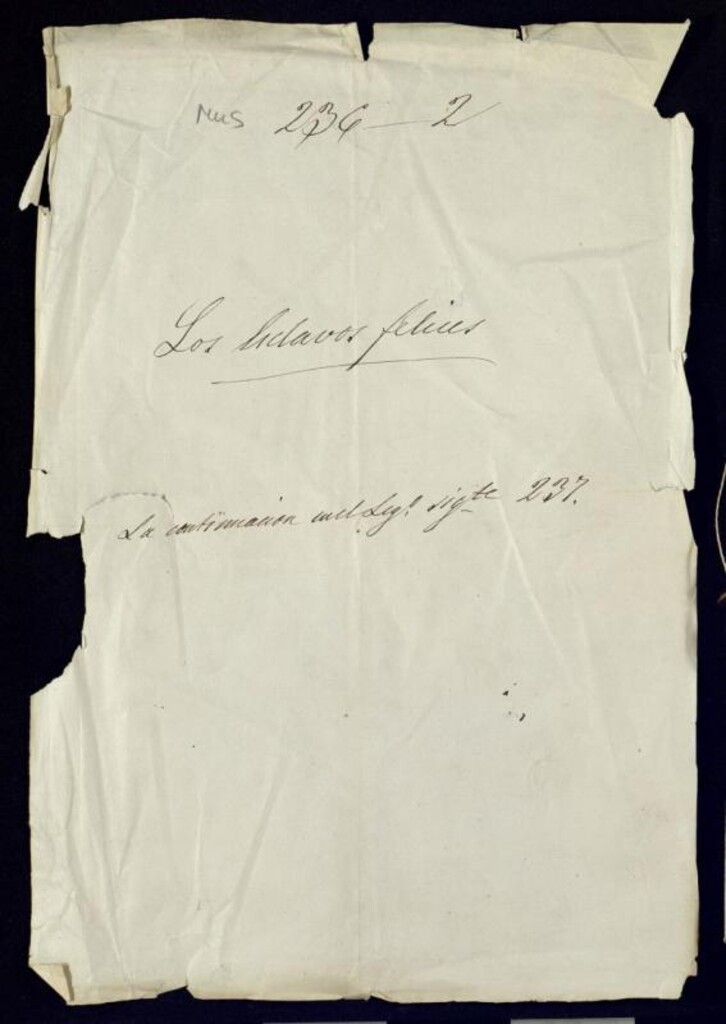 Mus 236-2
Los Esclavos felices
La continuacion en el Leg.º sigte 237.